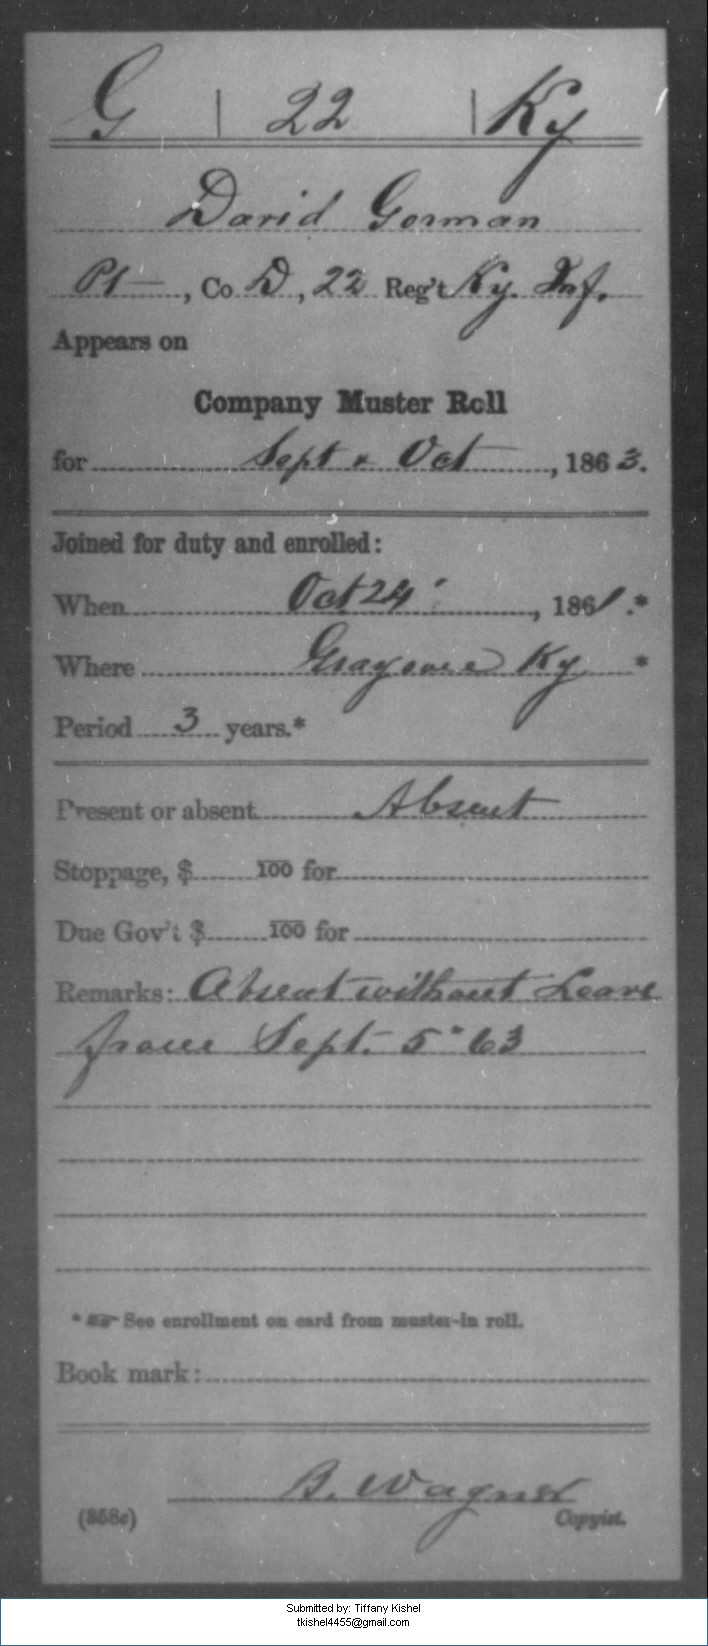 G | 22 | Ky
David Gorman
Pt, Co D, 22 Reg't Ky. Inf.
Appears on
Company Muster Roll
for Sept & Oct, 1863.
Joined for duty and enrolled:
When Oct 24", 1861.*
Where Ky *
Period 3 years.*
Present or absent Absent
Stoppage, $ 100 for
Due Gov't $ 100 for
Remarks: Absent without Leave
from Sept. 5" 63
* ☞ See enrollment on card from muster-in roll.
Book mark:
B. Wagner
(358c) Copyist.
Submitted by: Tiffany Kishel
tkishel4455@gmail.com